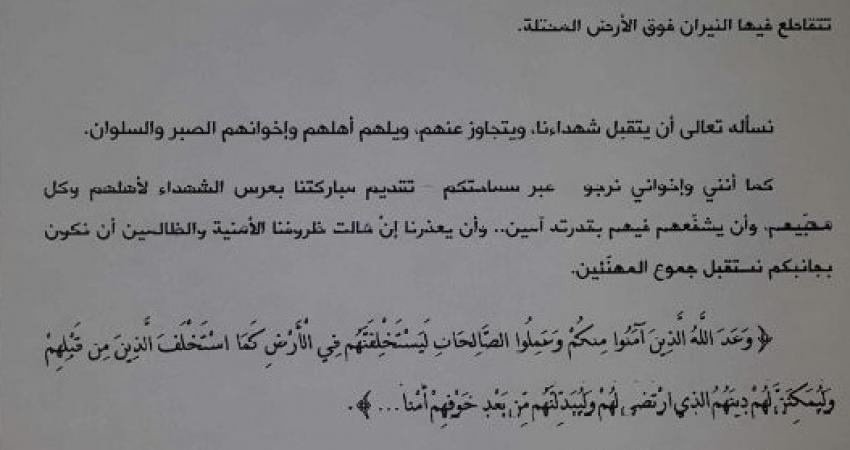 تتقاطع فيها النيران فوق الأرض المحتلة.
نسأله تعالى أن يتقبل شهداءنا، ويتجاوز عنهم، ويلهم أهلهم وإخوانهم الصبر والسلوان.
كما أنني وإخواني نرجو عبر سماحتكم - تقديم مباركتنا بعرس الشهداء لأهلهم وكل
محبّيهم، وأن يشفّعهم فيهم بقدرته آمين.. وأن يعذرنا إنْ حالت ظروفنا الأمنية والظالمين أن نكون
بجانبكم نستقبل جموع المهنّئين.
﴿ وَعَدَ اللَّهُ الَّذِينَ آمَنُوا مِنكُمْ وَعَمِلُوا الصَّالِحَاتِ لَيَسْتَخْلِفَنَّهُم فِي الْأَرْضِ كَمَا اسْتَخْلَفَ الَّذِينَ مِن قَبْلِهِمْ
وَلَيُمَكِّنَنَّ لَهُمْ دِينَهُمُ الَّذِي ارْتَضَى لَهُمْ وَلَيُبَدِّلَنَّهُم مِّن بَعْدِ خَوْفِهِمْ أَمْنًا... ﴾.